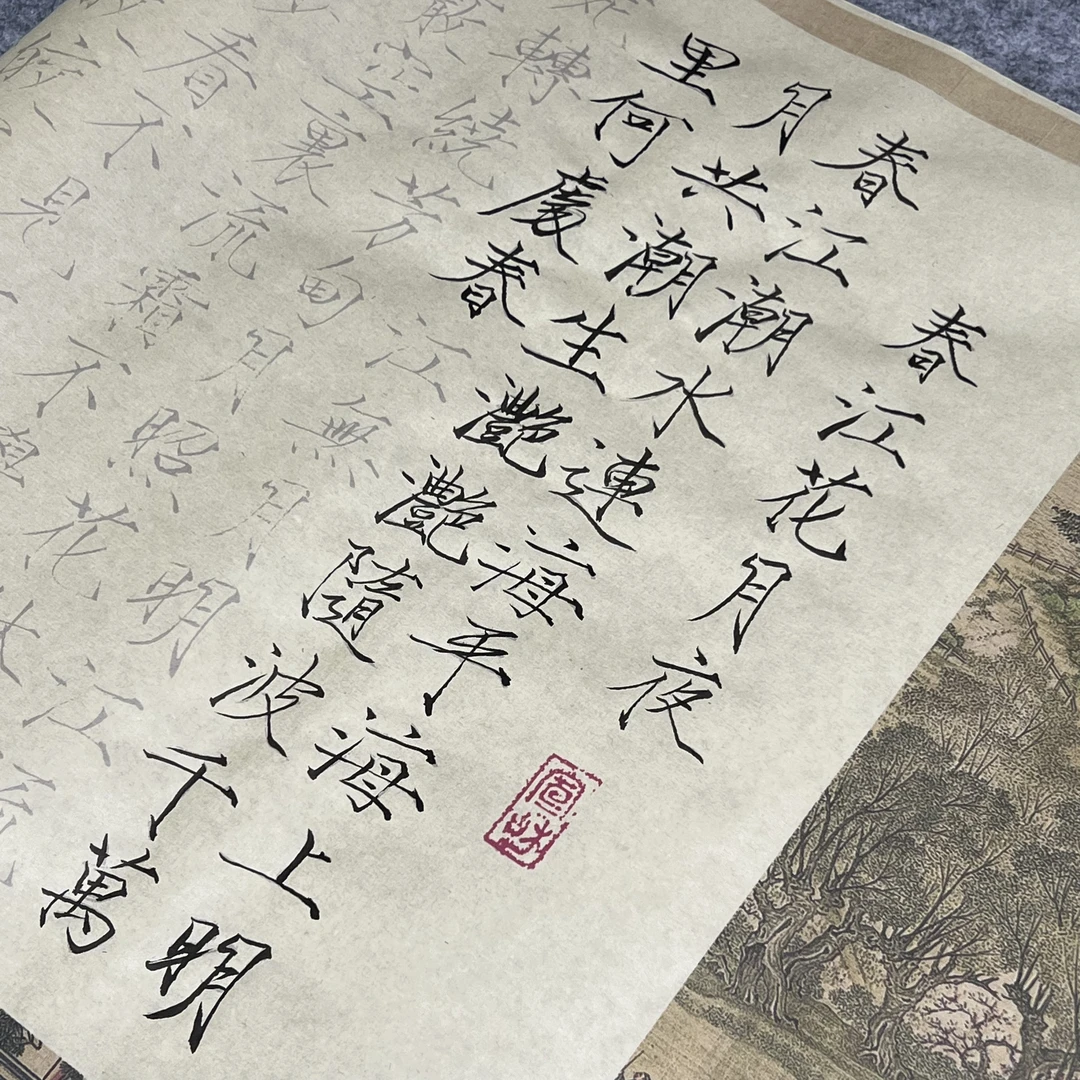 春江花月夜
春江潮水連海平海上明
月共潮生灩灩隨波千萬
里何處春江無月明江流
轉繞芳甸月照花
空裏流霜不覺
看不見